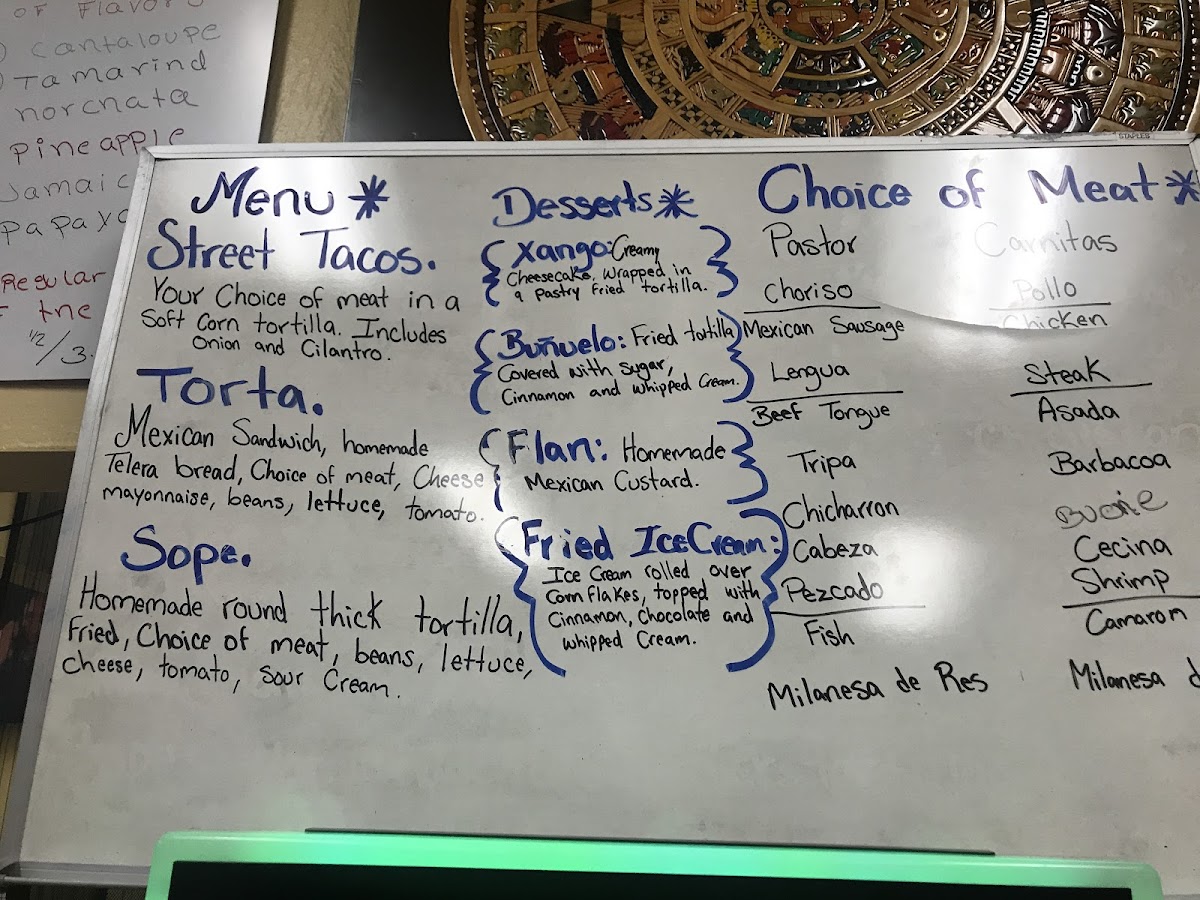 OF Flavors
Cantaloupe
Tamarind
norcnata
Pineapple
Jamaic
Papaya
Regular
F the
1/2 / 3.
STAPLES
Menu *
Street Tacos.
Your Choice of meat in a
Soft Corn tortilla. Includes
Onion and Cilantro.
Torta.
Mexican Sandwich, homemade
Telera bread, Choice of meat, Cheese
mayonnaise, beans, lettuce, tomato.
Sope.
Homemade round thick tortilla,
Fried, Choice of meat, beans, lettuce,
Cheese, tomato, Sour Cream.
Desserts *
Xango: Creamy
Cheesecake, Wrapped in
a Pastry Fried tortilla.
Buñuelo: Fried tortilla
Covered with sugar,
Cinnamon and whipped Cream.
Flan: Homemade
Mexican Custard.
Fried Ice Cream:
Ice Cream rolled over
Corn flakes, topped with
Cinnamon, Chocolate and
whipped Cream.
Choice of Meat *
Pastor
Choriso
Mexican Sausage
Lengua
Beef Tongue
Tripa
Chicharron
Cabeza
Pezcado
Fish
Milanesa de Res
Carnitas
Pollo
Chicken
Steak
Asada
Barbacoa
Buche
Cecina
Shrimp
Camaron
Milanesa d